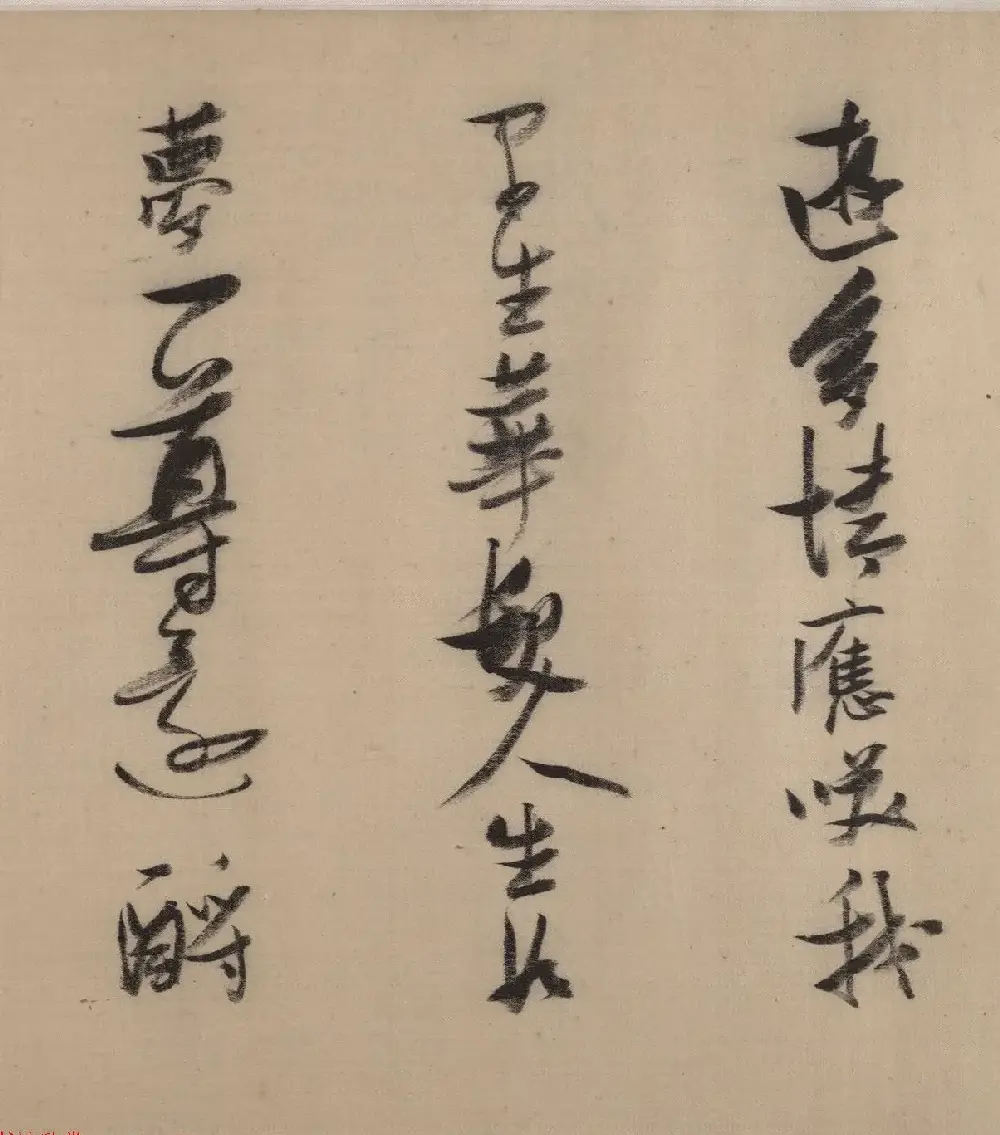 遊多情應咲我
早生華髮人生如
夢一尊還酹